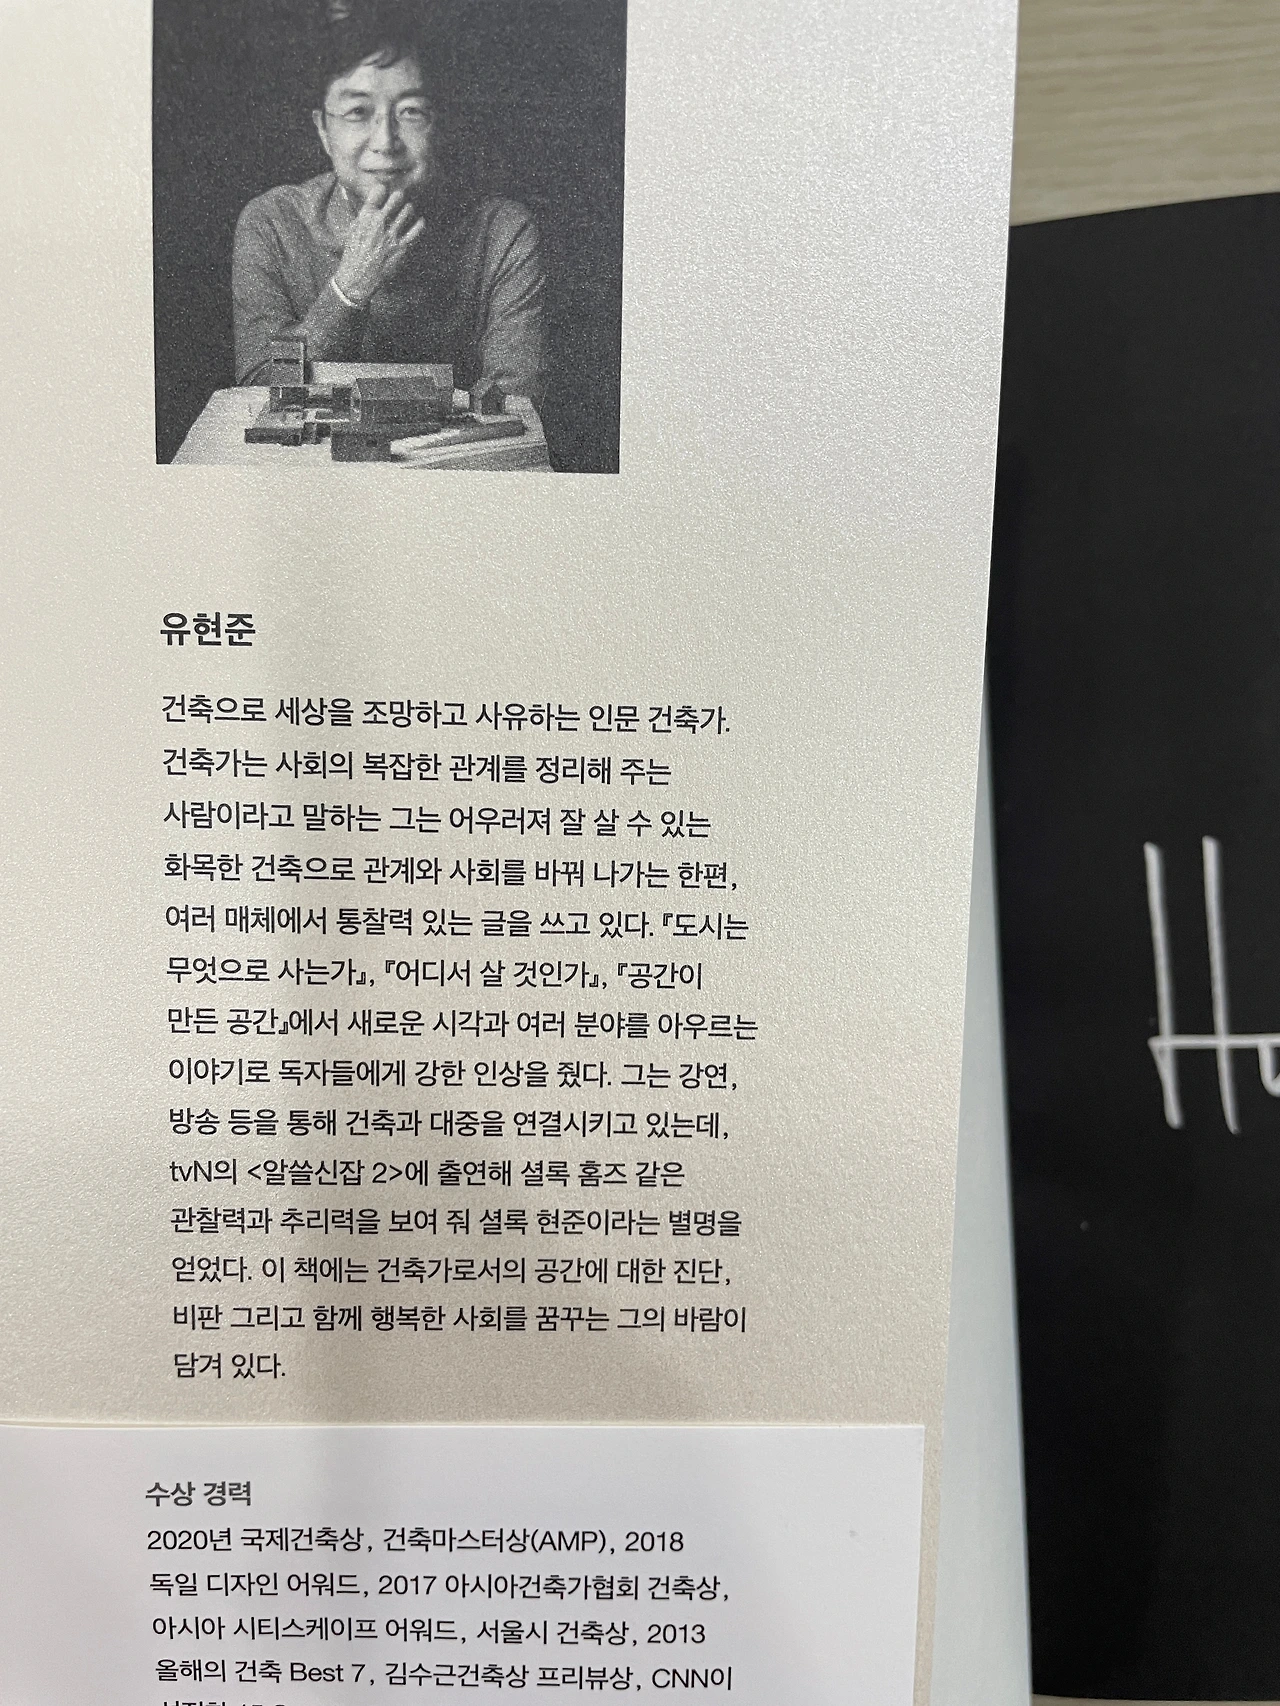 유현준
건축으로 세상을 조망하고 사유하는 인문 건축가.
건축가는 사회의 복잡한 관계를 정리해 주는
사람이라고 말하는 그는 어우러져 잘 살 수 있는
화목한 건축으로 관계와 사회를 바꿔 나가는 한편,
여러 매체에서 통찰력 있는 글을 쓰고 있다. 『도시는
무엇으로 사는가』, 『어디서 살 것인가』, 『공간이
만든 공간』에서 새로운 시각과 여러 분야를 아우르는
이야기로 독자들에게 강한 인상을 줬다. 그는 강연,
방송 등을 통해 건축과 대중을 연결시키고 있는데,
tvN의 <알쓸신잡 2>에 출연해 셜록 홈즈 같은
관찰력과 추리력을 보여 줘 셜록 현준이라는 별명을
얻었다. 이 책에는 건축가로서의 공간에 대한 진단,
비판 그리고 함께 행복한 사회를 꿈꾸는 그의 바람이
담겨 있다.
수상 경력
2020년 국제건축상, 건축마스터상(AMP), 2018
독일 디자인 어워드, 2017 아시아건축가협회 건축상,
아시아 시티스케이프 어워드, 서울시 건축상, 2013
올해의 건축 Best 7, 김수근건축상 프리뷰상, CNN이